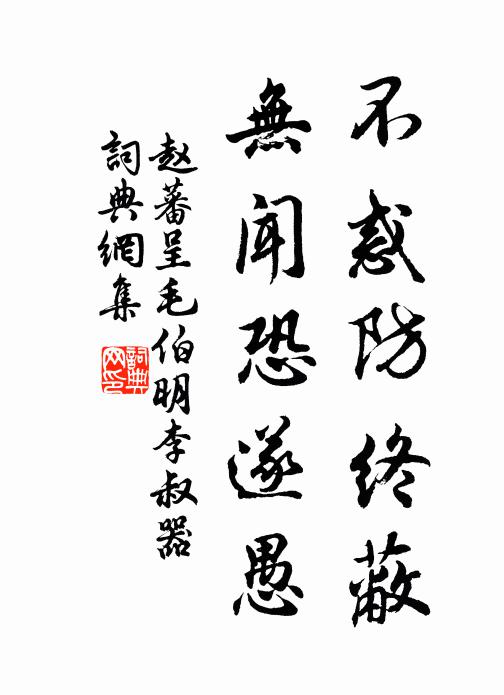 不惑防终蔽
無聞恐遂愚
赵蕃呈毛伯明李叔器
詞典網集
詞典网印